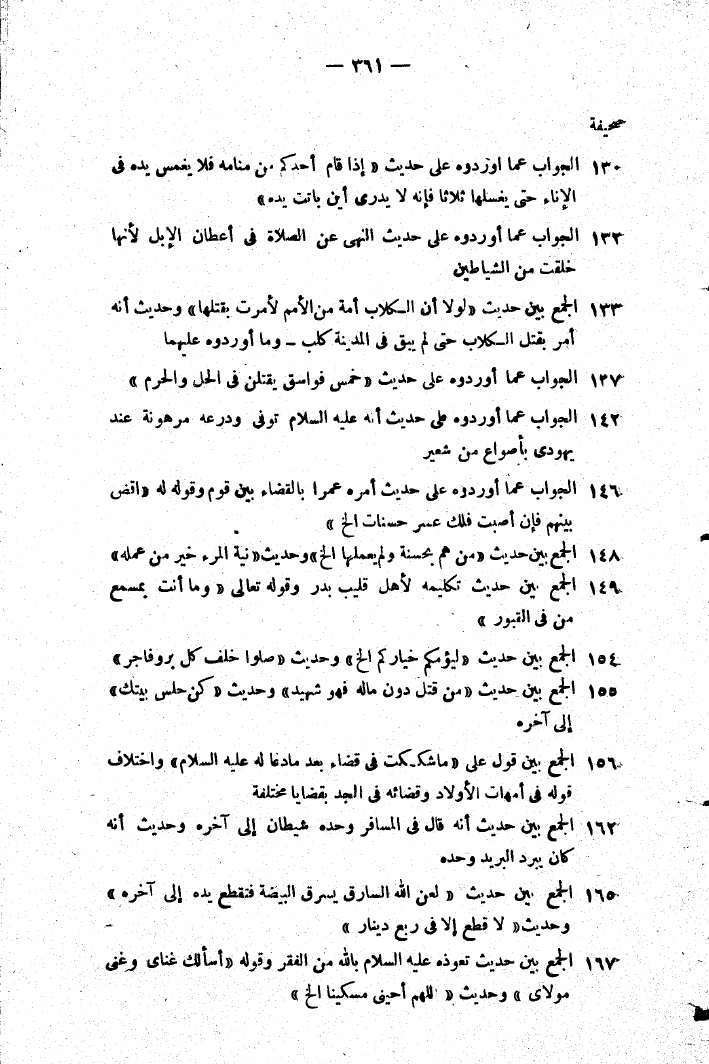 — ٣٦١ —
صحيفة
١٣٠ الجواب عما اوردوه على حديث « إذا قام أحدكم من منامه فلا يغمس يده فى
الإناء حتى يغسلها ثلاثا فإنه لا يدرى أين باتت يده»
١٣٢ الجواب عما أوردوه على حديث النهى عن الصلاة فى أعطان الإبل لأنها
خلقت من الشياطين
١٣٣ الجمع بين حديث «لولا أن الكلاب أمة من الأمم لأمرت بقتلها» وحديث أنه
أمر بقتل الكلاب حتى لم يبق فى المدينة كلب – وما أوردوه عليهما
١٣٧ الجواب عما أوردوه على حديث «خمس فواسق يقتلن فى الحل والحرم »
١٤٢ الجواب عما أوردوه على حديث أنه عليه السلام توفى ودرعه مرهونة عند
يهودى بأصواع من شعير
١٤٦ الجواب عما أوردوه على حديث أمره عمرا بالقضاء بين قوم وقوله له «اقض
بينهم فإن أصبت فلك عسر حسنات الخ »
١٤٨ الجمع بين حديث «من هم بحسنة ولم يعملها الخ» وحديث «نية المرء خير من عمله»
١٤٩ الجمع بين حديث تكليمه لأهل قليب بدر وقوله تعالى « وما أنت بمسمع
من فى القبور »
١٥٤ الجمع بين حديث «ليؤمكم خياركم الخ» وحديث «صلوا خلف كل بر وفاجر»
١٥٥ الجمع بين حديث «من قتل دون ماله فهو شهيد» وحديث «كن حلس بيتك»
إلى آخره
١٥٦ الجمع بين قول على «ما شككت فى قضاء بعد ما دعا له عليه السلام» واختلاف
قوله فى أمهات الأولاد وقضائه فى الجد بقضايا مختلفة
١٦٢ الجمع بين حديث أنه قال فى المسافر وحده شيطان إلى آخره وحديث أنه
كان يبرد البريد وحده
١٦٥ الجمع بين حديث « لعن الله السارق يسرق البيضة فتقطع يده إلى آخره »
وحديث « لا قطع إلا فى ربع دينار »
١٦٧ الجمع بين حديث تعوذه عليه السلام بالله من الفقر وقوله «أسألك غناى وغنى
مولاى » وحديث « اللهم أحينى مسكينا الخ »